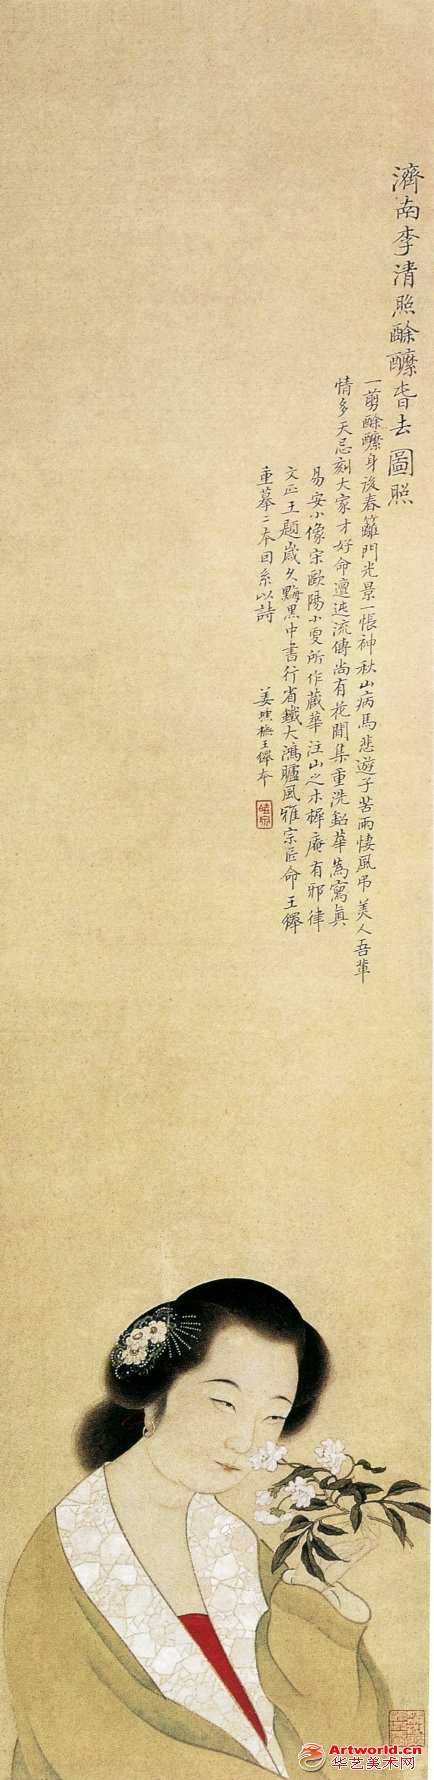 濟南李清照酴醾春去圖照
一翦酴醾身後春籬門光景一悵神秋山病馬悲遊子苦雨悽風弔美人吾輩
情多天忌刻大家才好命邅迍流傳尚有花間集重洗鉛華為寫真
易安小像宋歐陽小雯所作藏華注山之木樨庵有邪律
文正王題歲久黝黑中書行省鐵大鴻臚風雅宗匠命王鐸
重摹二本因系以詩
姜壎橅王鐸本
Artworld.cn
华艺美术网